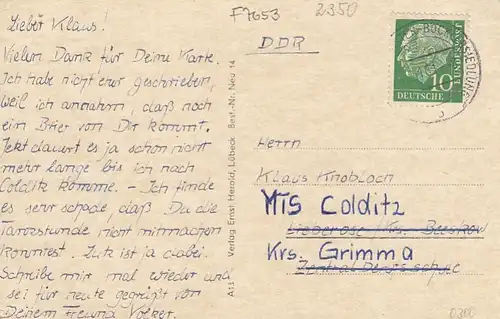 Lieber Klaus!
Vielen Dank für Deine Karte.
Ich habe nicht eher geschrieben,
weil ich annahm, daß noch
ein Brief von Dir kommt.
Jetzt dauert es ja schon nicht
mehr lange bis ich nach
Colditz komme. - Ich finde
es sehr schade, daß Du die
Tanzstunde nicht mitmachen
konntest. Lutz ist ja dabei.
Schreibe mir mal wieder und
sei für heute gegrüßt von
Deinem Freund Volker.
A13 Verlag Ernst Herold, Lübeck Best.-Nr. Neu 14
F7653
2350
DDR
DEUTSCHE
BUNDESPOST
10
Herrn
Klaus Knobloch
MTS Colditz
Lieberose Krs. Beeskow
Krs. Grimma
0300